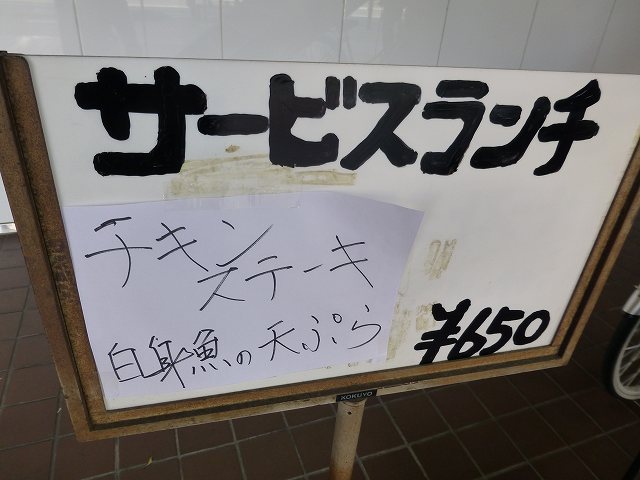 サービスランチ
チキン
ステーキ
白身魚の天ぷら
¥650
KOKUYO